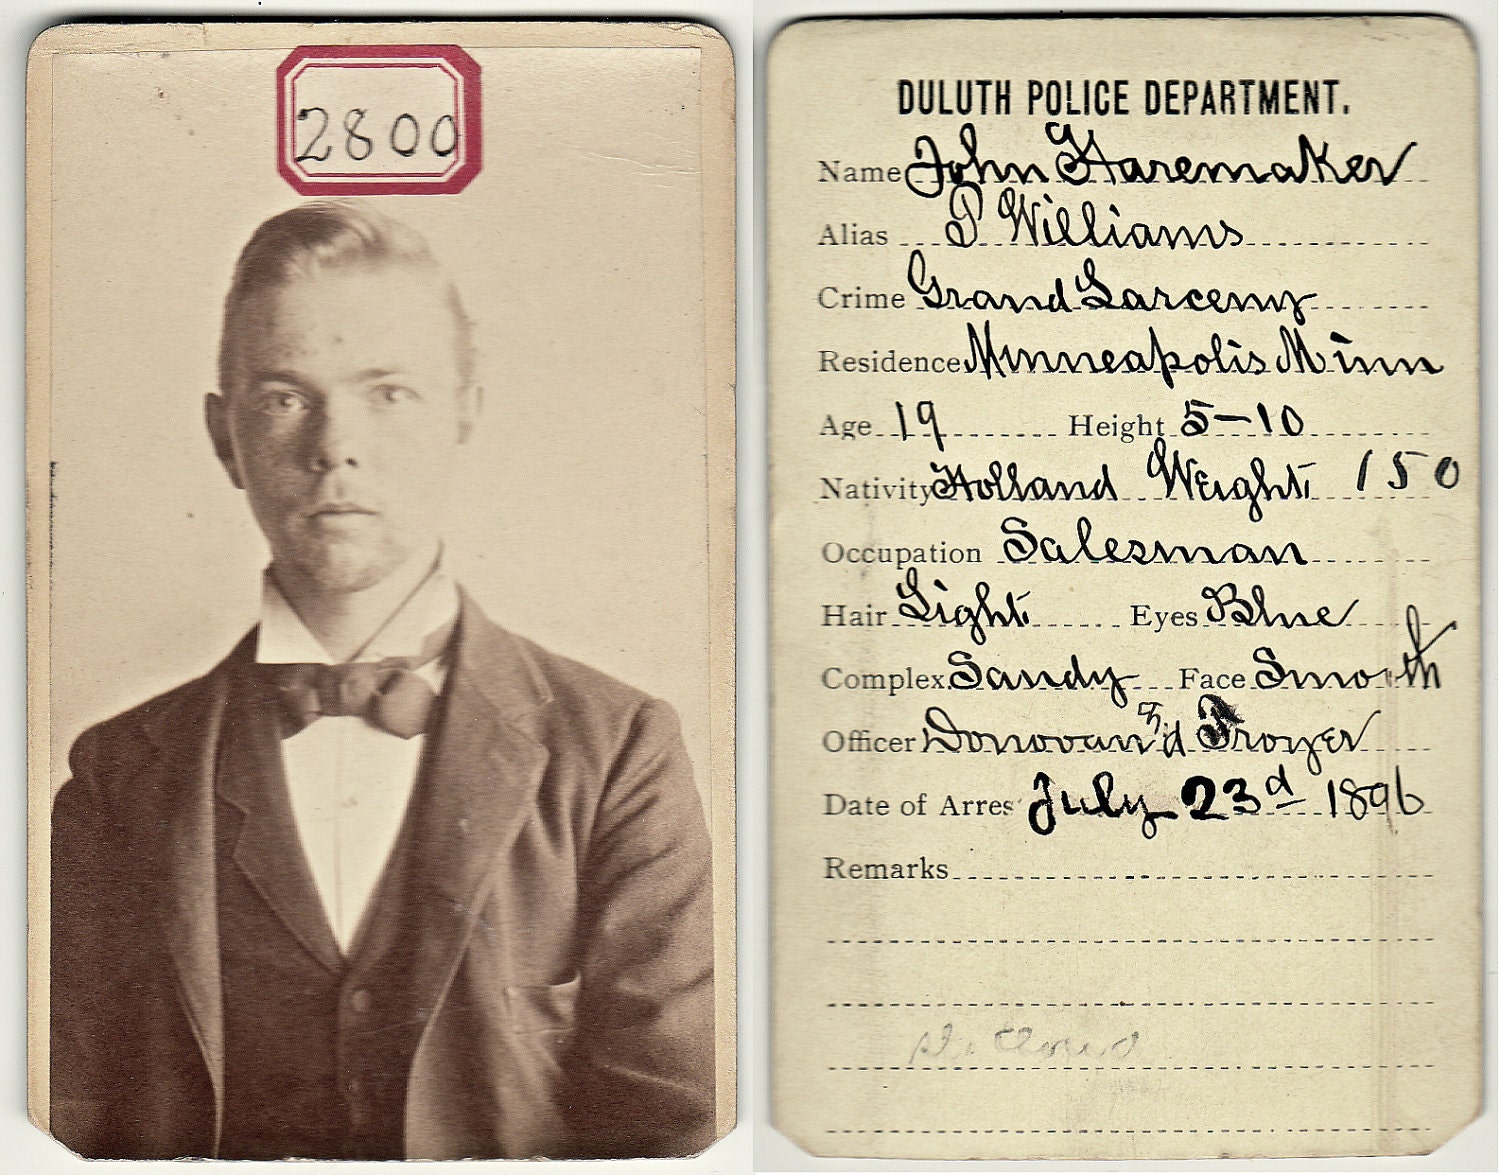 2800
DULUTH POLICE DEPARTMENT.
Name John Haremaker
Alias P Williams
Crime Grand Larceny
Residence Minneapolis Minn
Age 19 Height 5-10
Nativity Holland Weight 150
Occupation Salesman
Hair Light Eyes Blue
Complex. Sandy Face Smooth
Officer Donovan Troyer
Date of Arres July 23d 1896
Remarks
St. Cloud